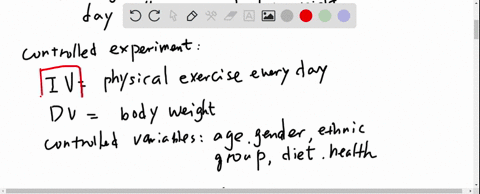 day
controlled experiment:
IV = physical exercise every day
DV = body weight
controlled variables: age. gender, ethnic
group, diet. health